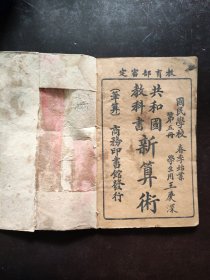 教育部審定
國民學校 春季始業
第五冊 學生用
共和國
教科書
新算術
(筆算) 商務印書館發行